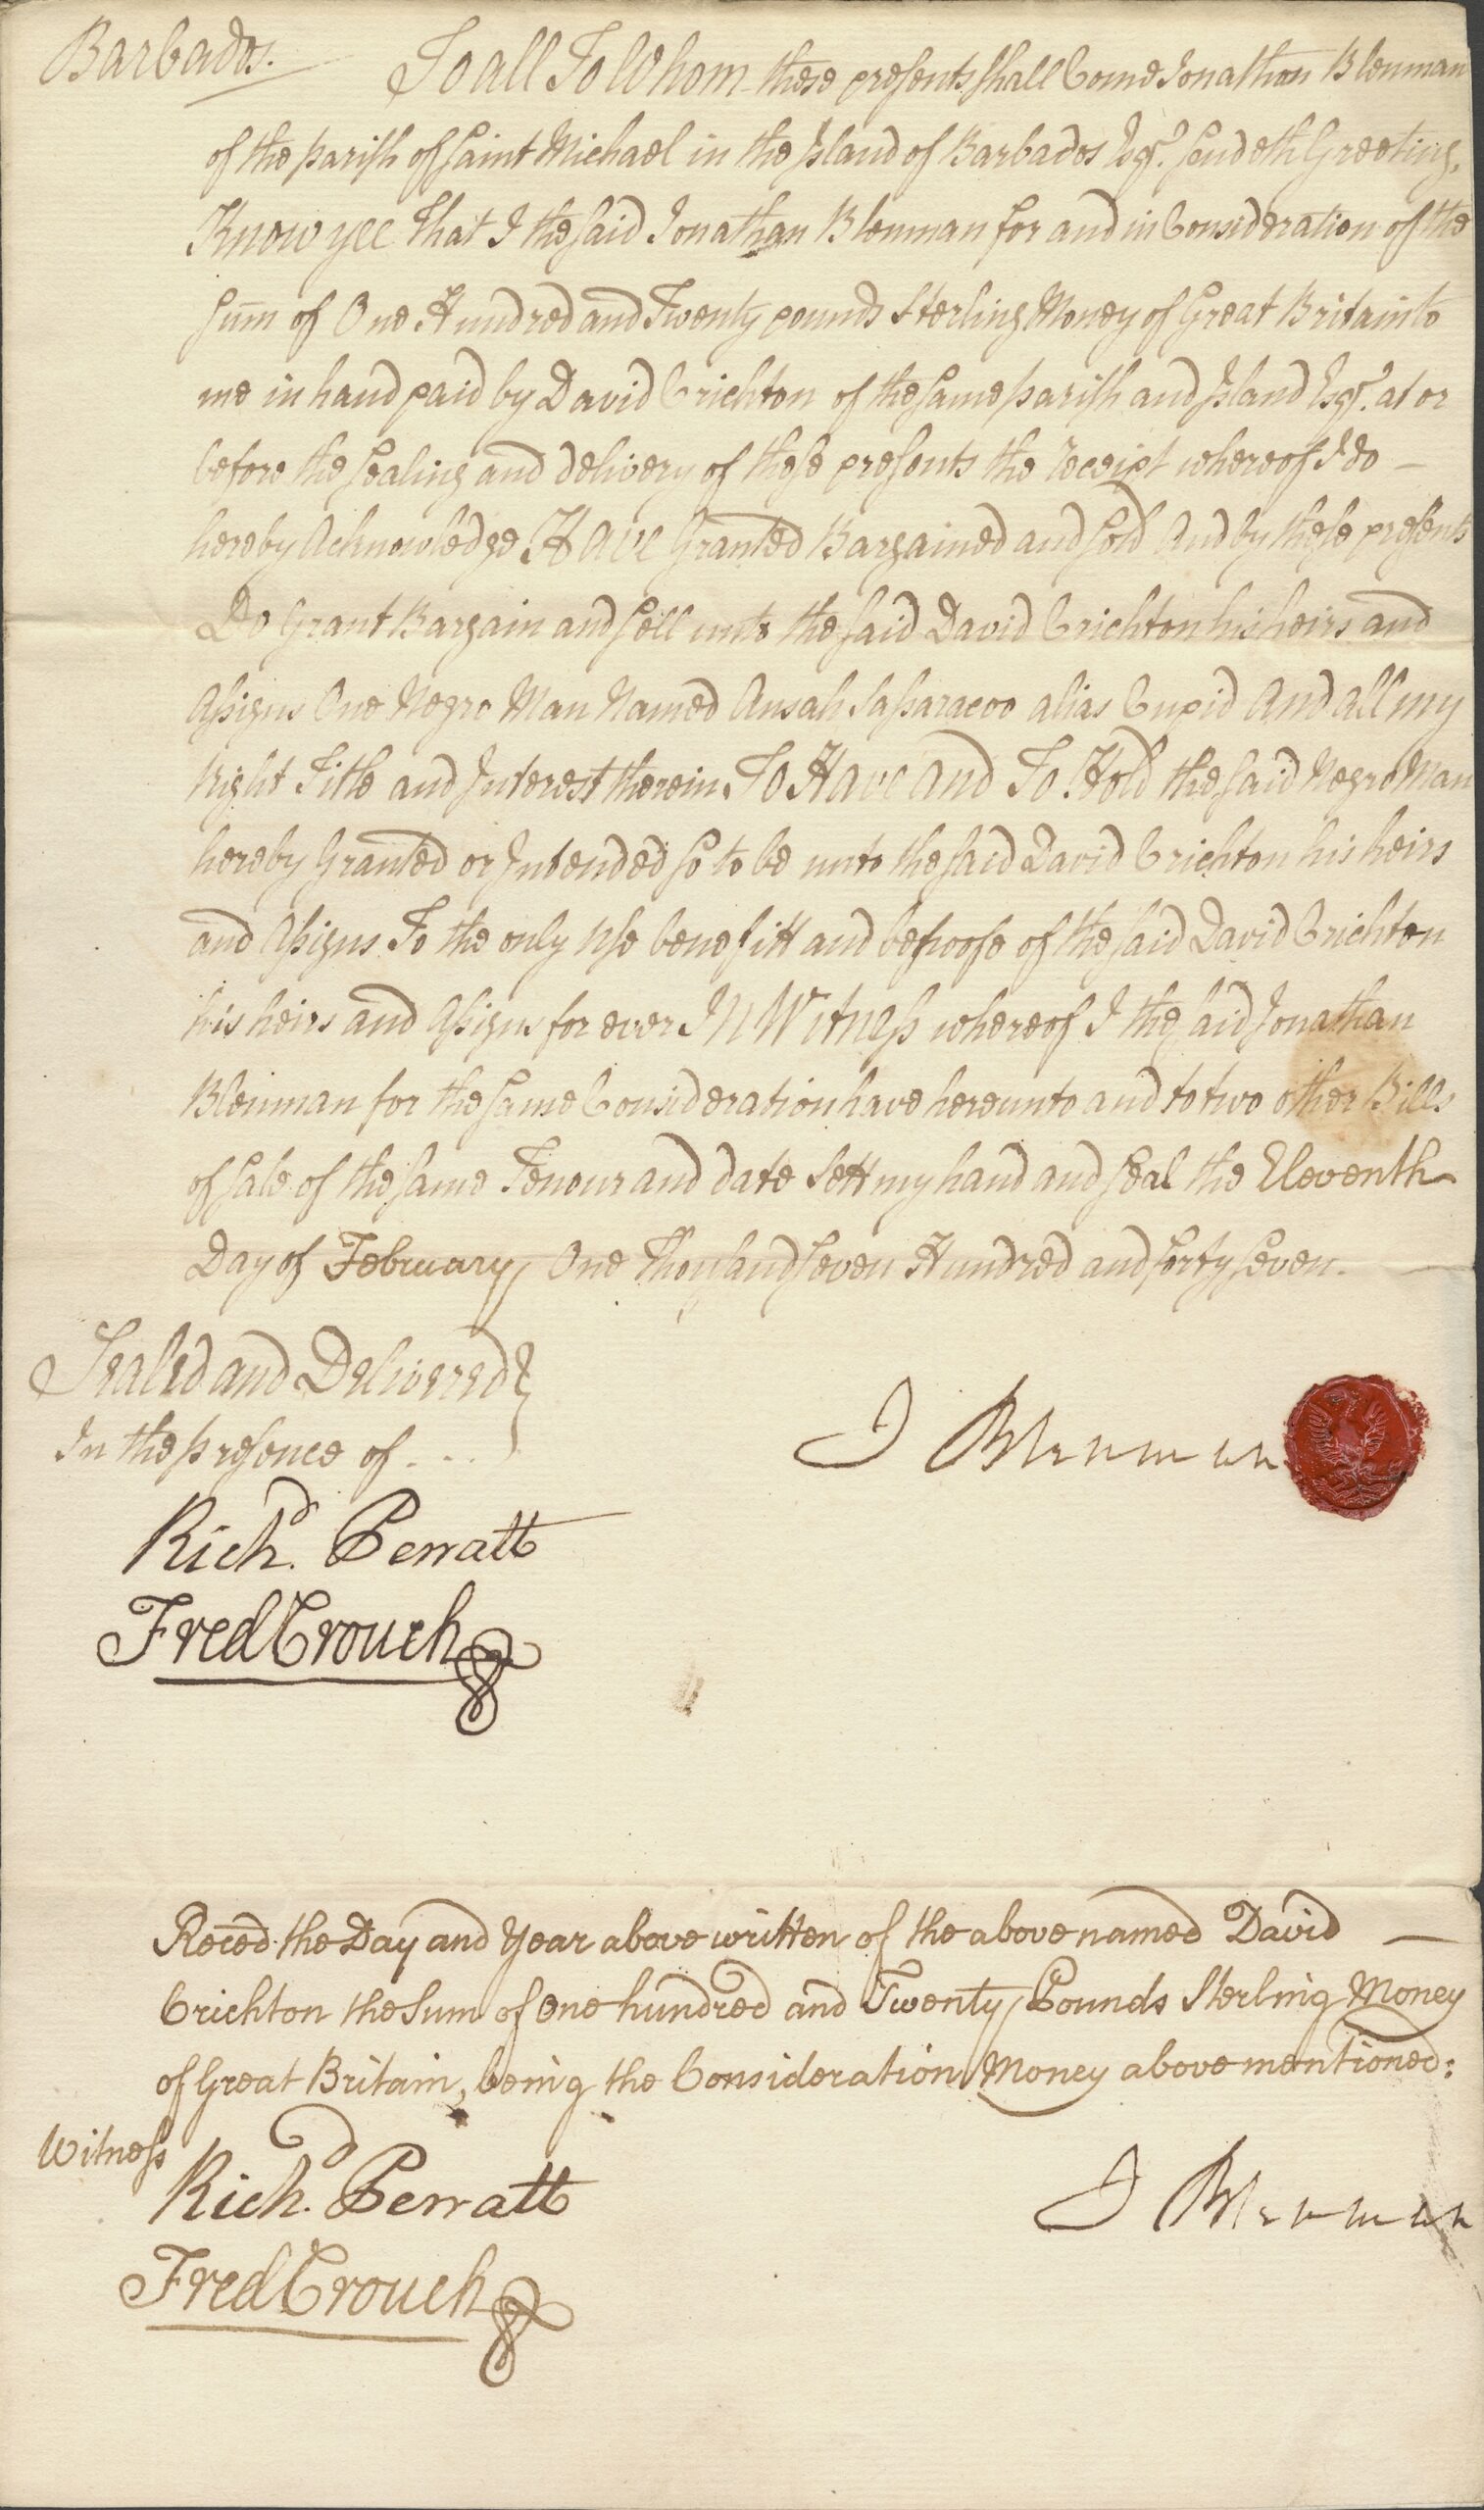 Barbados. To all To Whom these presents shall Come Jonathan Blenman
of the parish of Saint Michael in the Island of Barbados Esqr. Sendeth Greeting,
Know yee That I the said Jonathan Blenman for and in Consideration of the
Sum of One Hundred and Twenty pounds Sterling Money of Great Britain to
me in hand paid by David Crichton of the same parish and Island Esqr. at or
before the sealing and delivery of these presents the receipt whereof I do —
hereby Acknowledge, Have Granted Bargained and Sold And by these presents
Do Grant Bargain and Sell unto the said David Crichton his heirs and
Assigns One Negro Man Named Ansah Sasaracoo alias Cupid And All my
Right Title and Interest therein, To Have And To Hold the said Negro Man
hereby Granted or Intended so to be unto the said David Crichton his heirs
and Assigns To the only Use benefitt and behoofe of the said David Crichton
his heirs and Assigns for ever In Witness whereof I the said Jonathan
Blenman for the same Consideration have hereunto and to two other Bills
of Sale of the same Tenour and date Sett my hand and Seal the Eleventh
Day of February One Thousand Seven Hundred and forty Seven.
Sealed and Delivered }
In the presence of . . .
J Blenman
Richd. Perratt
Fred Crouch
Reced. the Day and Year above written of the above named David —
Crichton the Sum of One hundred and Twenty Pounds Sterling Money
of Great Britain, being the Consideration Money above mentioned:
Witness
Richd. Perratt
J Blenman
Fred Crouch